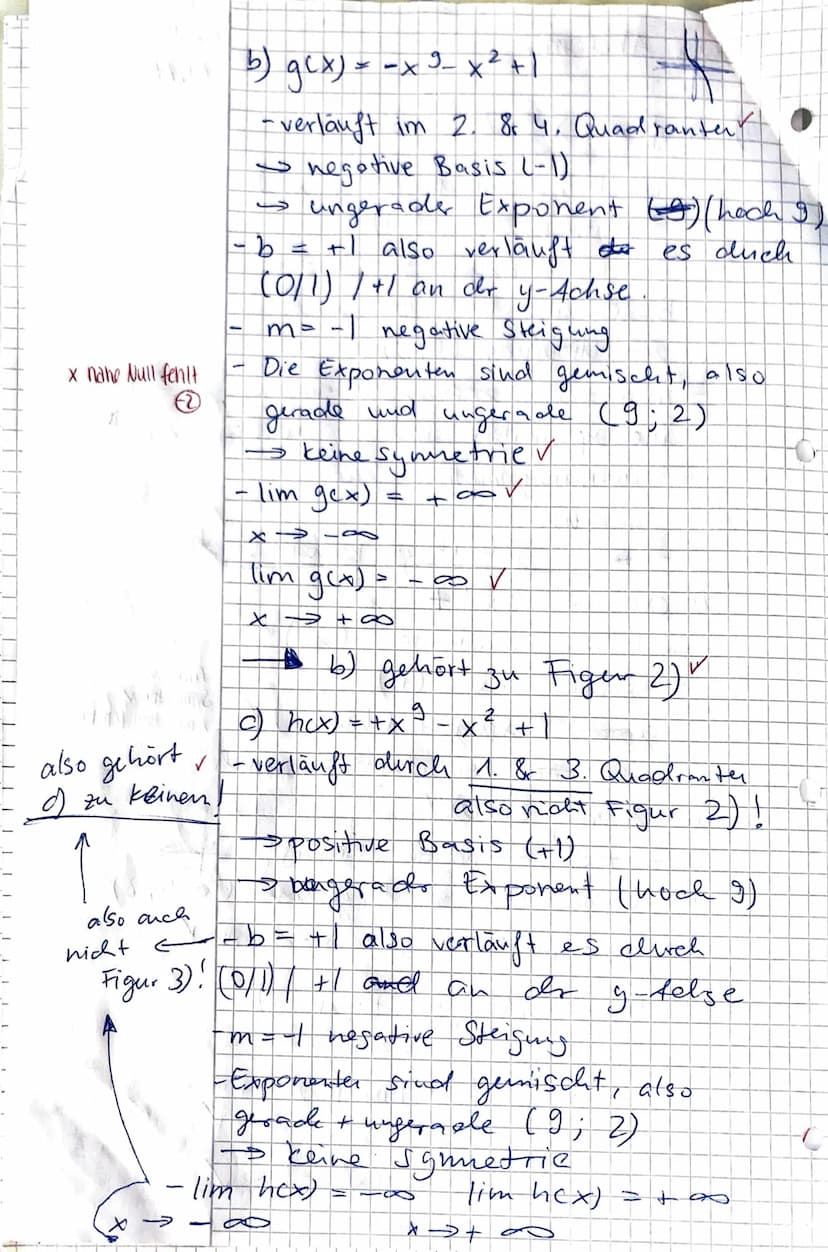 b) g(x) = -x⁹ - x² + 1
- verläuft im 2. & 4. Quadranten ✓
→ negative Basis (-1)
→ ungerader Exponent (hoch 9)
- b = +1 also verläuft es durch
(0/1) / +1 an der y-Achse.
- m = -1 negative Steigung
x nahe Null fehlt
(-2)
- Die Exponenten sind gemischt, also
gerade und ungerade (9; 2)
→ keine symmetrie ✓
- lim g(x) = + ∞ ✓
x → -∞
lim g(x) = - ∞ ✓
x → + ∞
→ b) gehört zu Figur 2) ✓
c) h(x) = +x⁹ - x² + 1
- verläuft durch 1. & 3. Quadranten
also nicht Figur 2)!
→ positive Basis (+1)
→ ungerader Exponent (hoch 9)
- b = +1 also verläuft es durch
(0/1) / +1 an der y-
- m = -1 negative Steigung
- Exponenten sind gemischt, also
gerade + ungerade (9; 2)
→ keine Symmetrie
- lim h(x) = -∞ lim h(x) = + ∞
x → - ∞ x → + ∞
also auch
nicht ←
Figur 3)!
also gehört ✓
c) zu keinem!